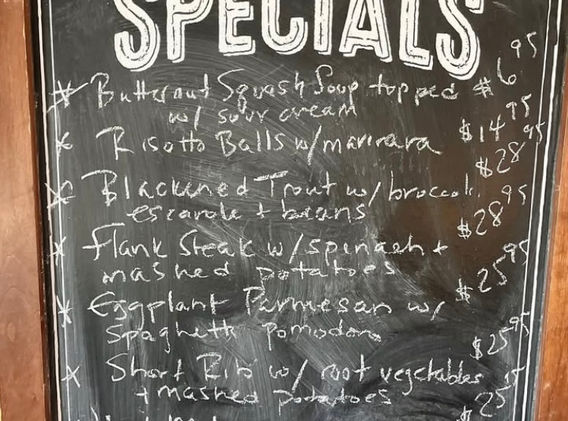 SPECIALS
* Butternut Squash Soup topped $6.95
w/ sour cream
* Risotto Balls w/ marinara $14.95
$28.95
* Blackened Trout w/ broccoli,
escarole + beans
$28.95
* Flank Steak w/ spinach +
mashed potatoes
$25.95
* Eggplant Parmesan w/
Spaghetti Pomodoro
$25.95
* Short Rib w/ root vegetables
+ mashed potatoes
$25